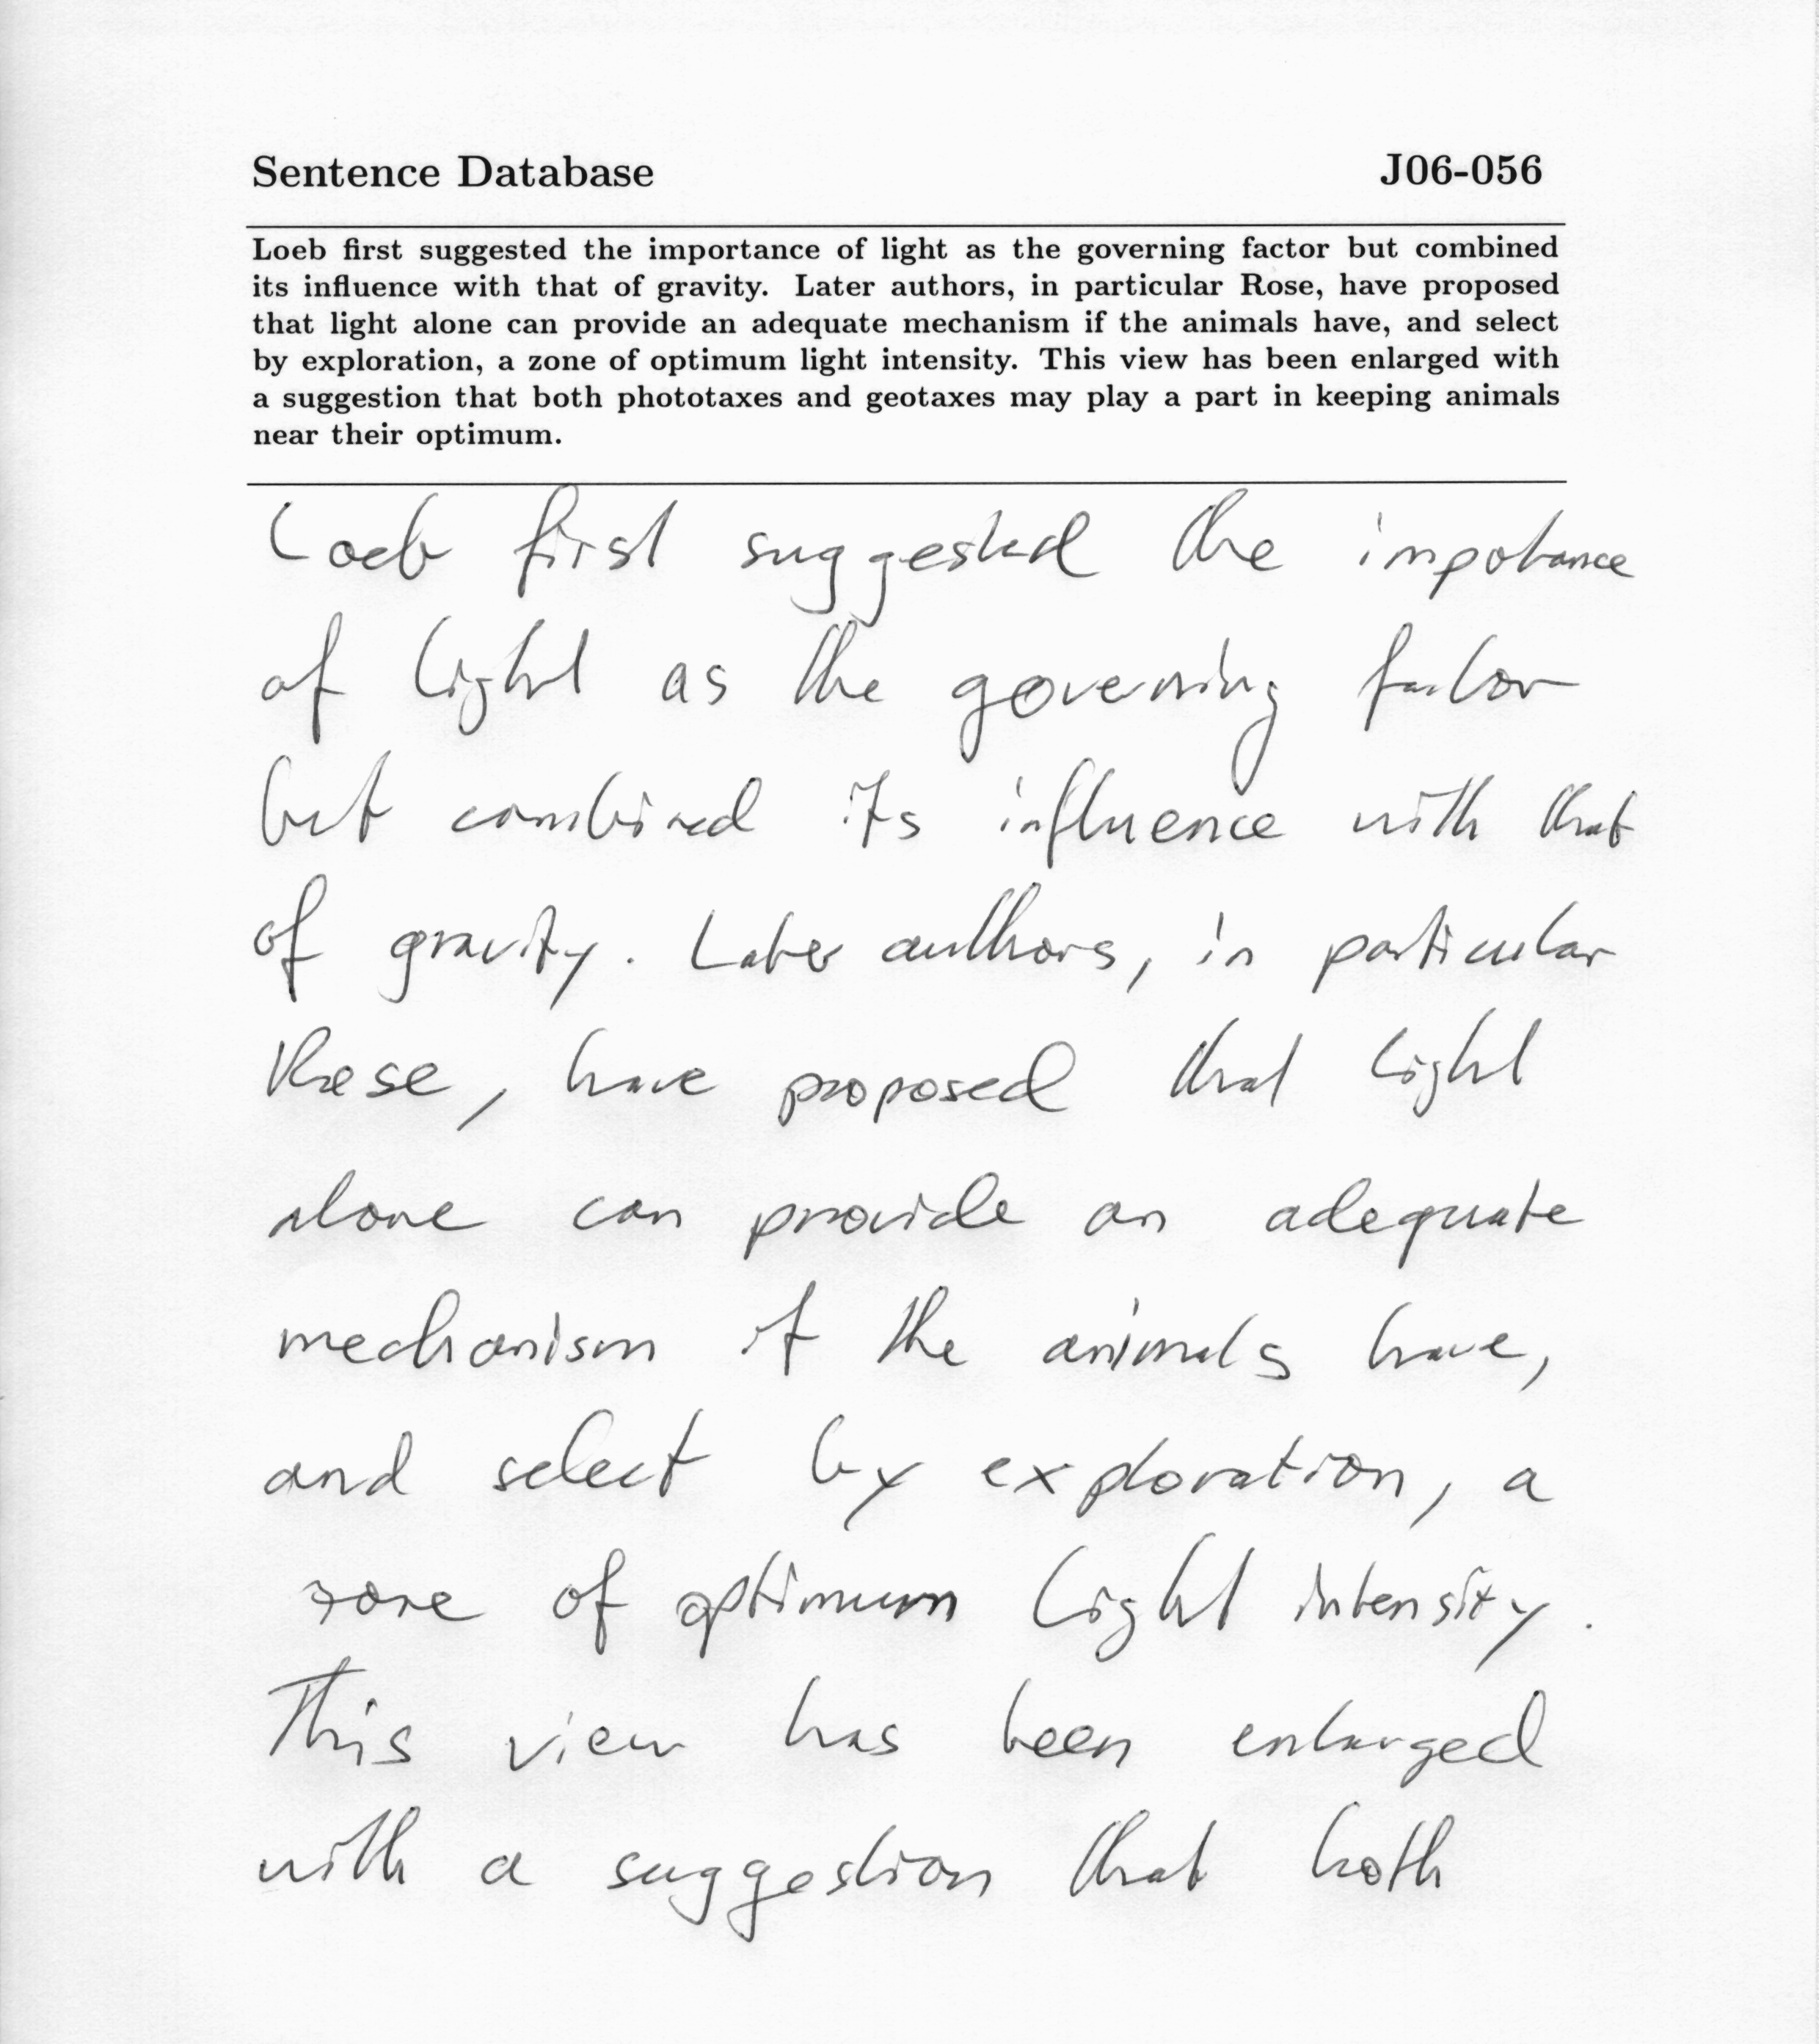 Sentence Database J06-056
Loeb first suggested the importance of light as the governing factor but combined
its influence with that of gravity. Later authors, in particular Rose, have proposed
that light alone can provide an adequate mechanism if the animals have, and select
by exploration, a zone of optimum light intensity. This view has been enlarged with
a suggestion that both phototaxes and geotaxes may play a part in keeping animals
near their optimum.
Loeb first suggested the impotance
of light as the governing factor
but combined its influence with that
of gravity. Later authors, in particular
Rose, have proposed that light
alone can provide an adequate
mechanism if the animals have,
and select by exploration, a
zone of optimum light intensity.
This view has been enlarged
with a suggestion that both